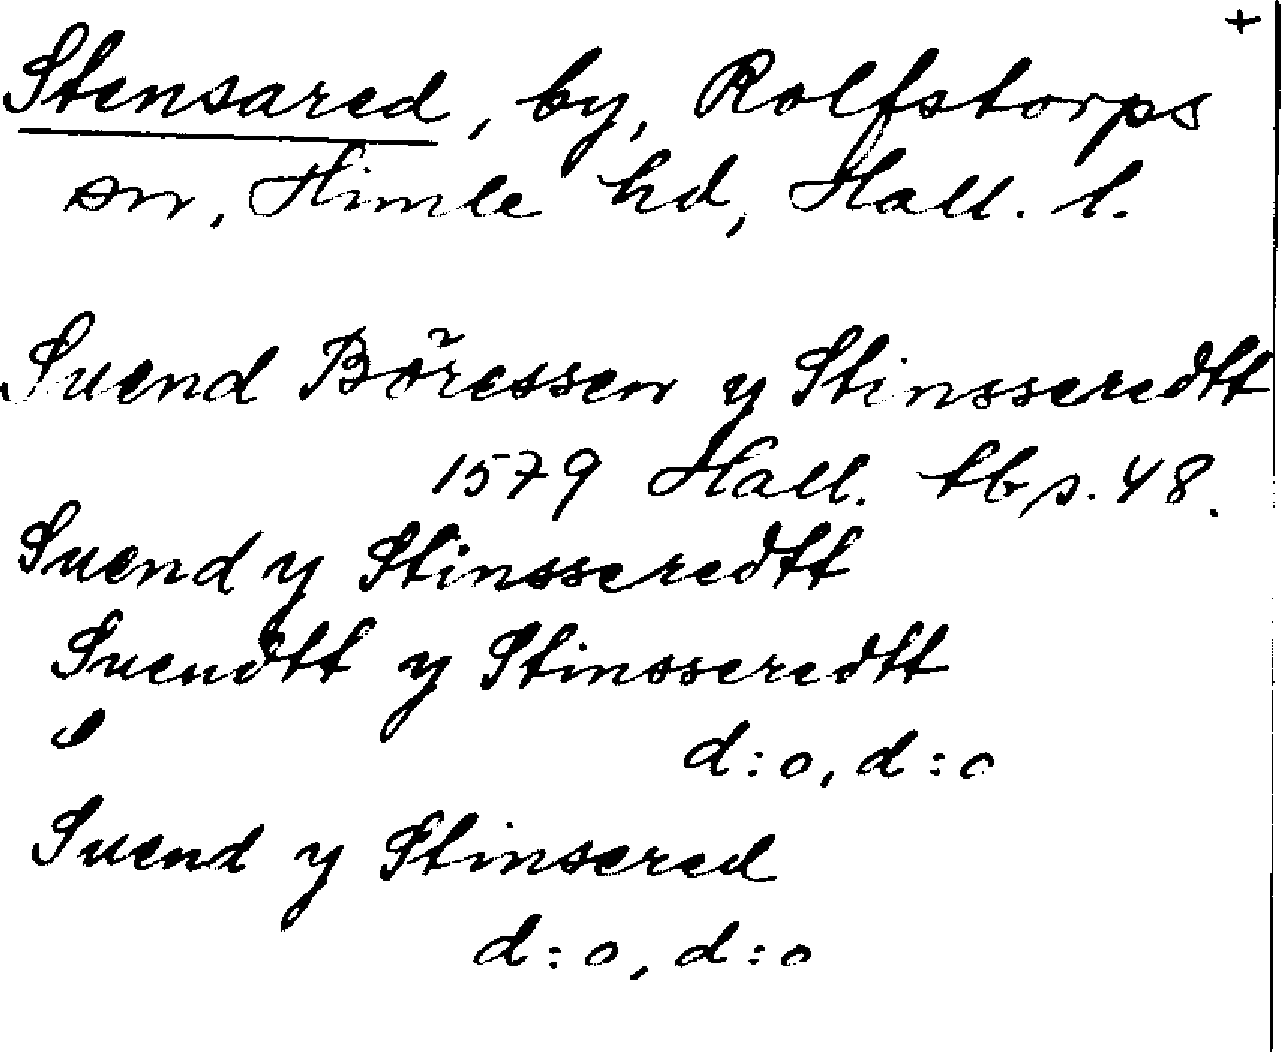 +
Stensared, by, Rolfstorps
sn, Himle hd, Hall. l.
Suend Böressen y Stinsseredtt
1579 Hall. tb s. 48.
Suend y Stinsseredtt
Suendtt y Stinsseredtt
d:o, d:o
Suend y Stinsered
d:o, d:o